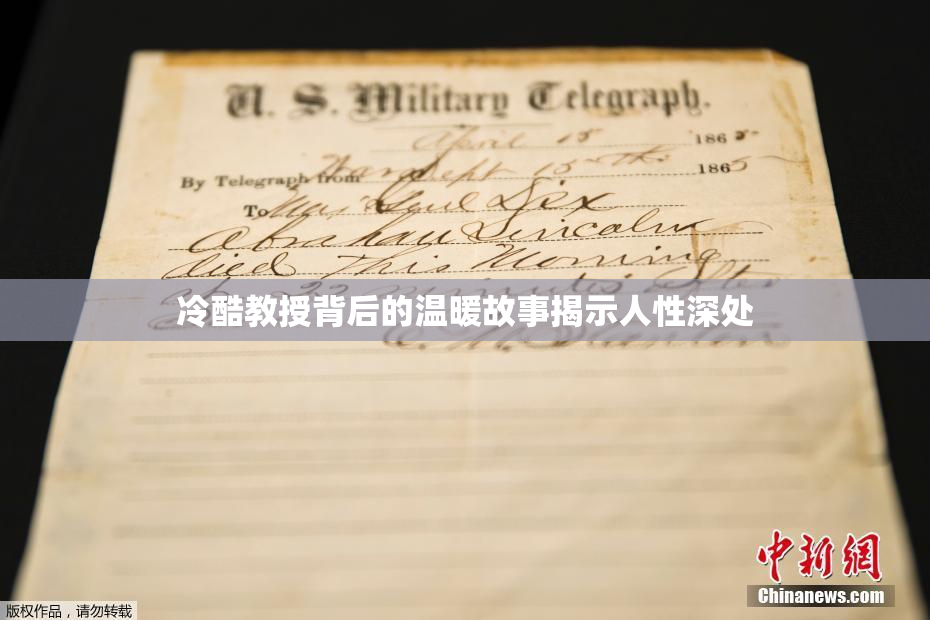 U. S. Military Telegraph.
April 15 1865
By Telegraph from War Dept 15th 1865
To Maj Genl Dix
Abraham Lincoln
died This Morning
at 22 minutes after
冷酷教授背后的温暖故事揭示人性深处
E. M. Stanton
中新网
Chinanews.com
版权作品，请勿转载